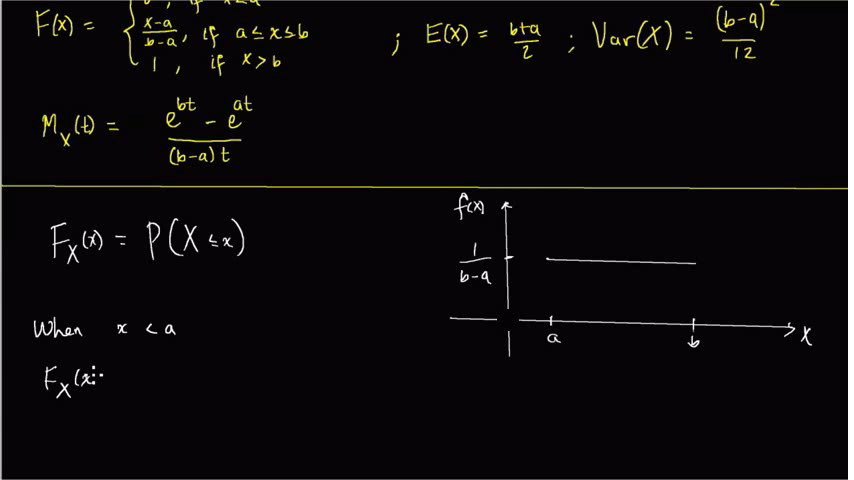 F(x) = { 0, if x<a
x-a/b-a, if a≤x≤b
1, if x>b
; E(X) = b+a/2 ; Var(X) = (b-a)²/12
M_X(t) = e^bt - e^at / (b-a)t
F_X(x) = P(X ≤ x)
When x < a
F_X(x
f(x)
1/b-a
a
b
X